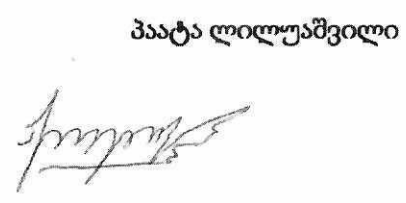 პაატა ლილუაშვილი